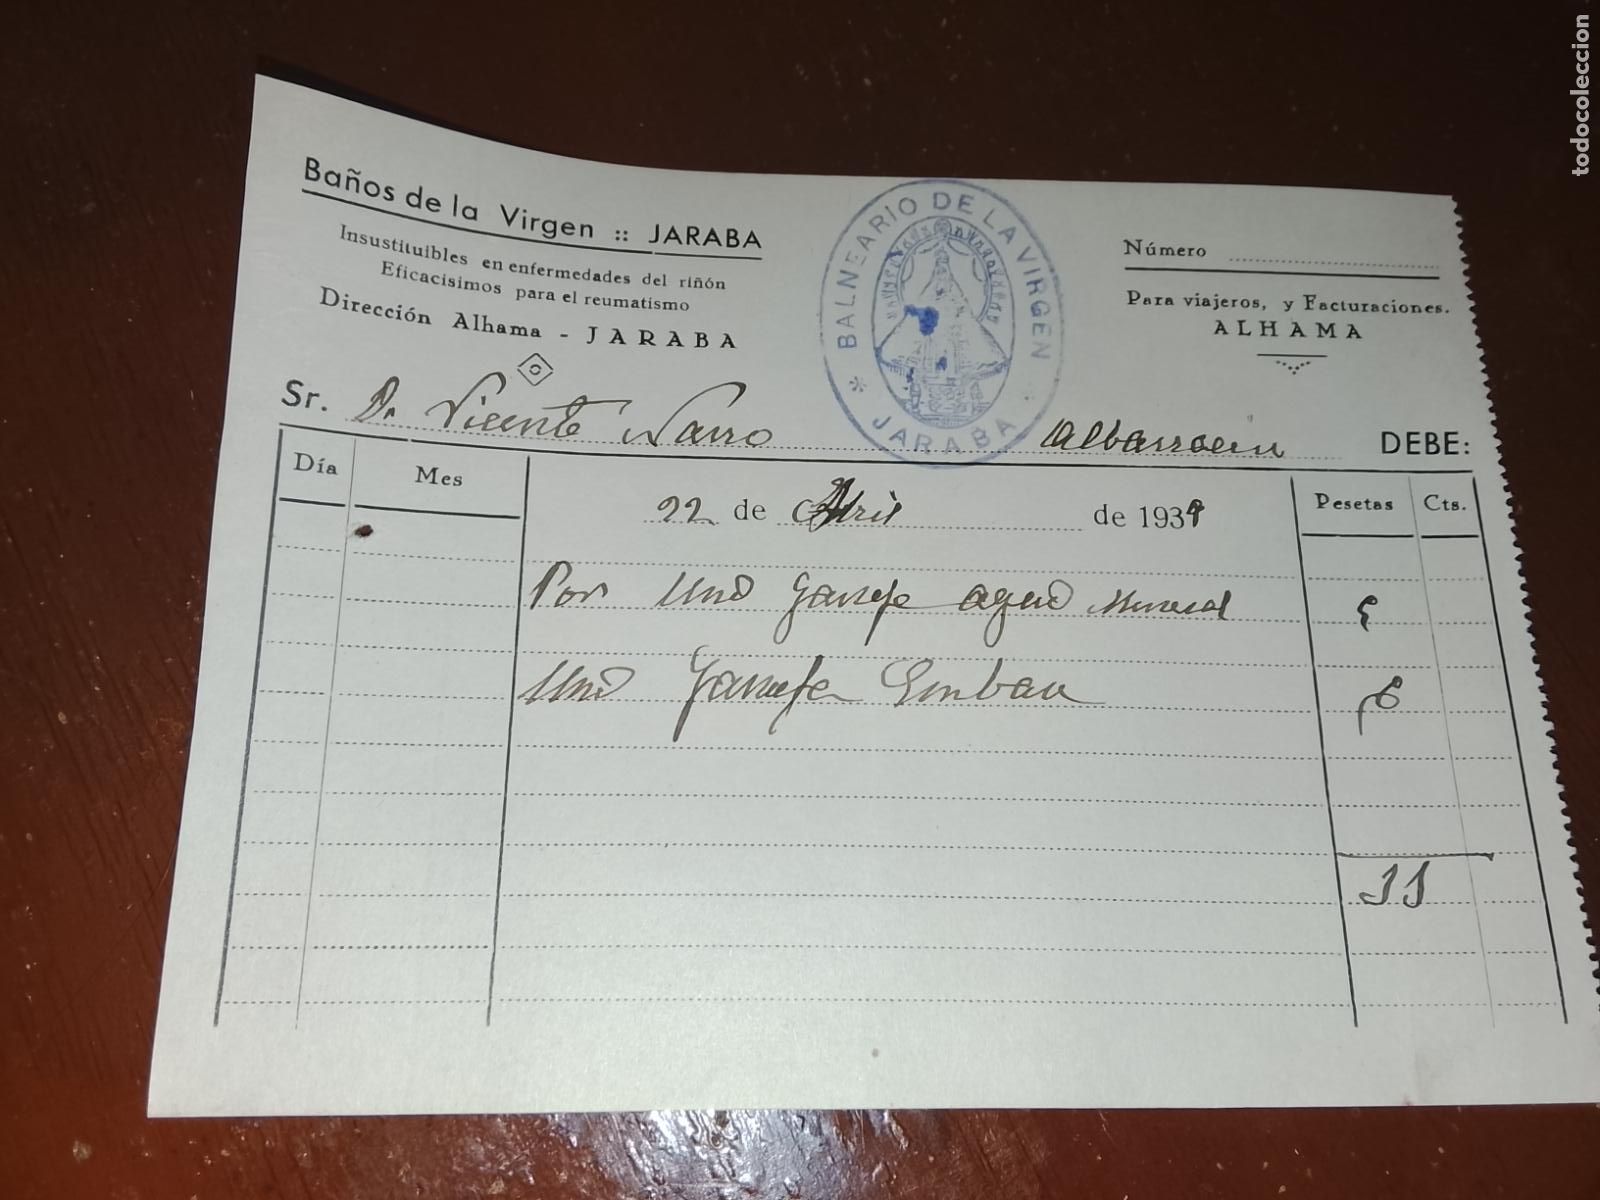 Baños de la Virgen :: JARABA
Insustituibles en enfermedades del riñón
Eficacisimos para el reumatismo
Dirección Alhama - JARABA
BALNEARIO DE LA VIRGEN
* JARABA
Número
Para viajeros, y Facturaciones.
ALHAMA
Sr. Dn Vicente Narro Albarracin DEBE:
Día Mes Pesetas Cts.
22 de Abril de 1939
Por una garrafa agua mineral 5
una garrafa 6
11
todocoleccion